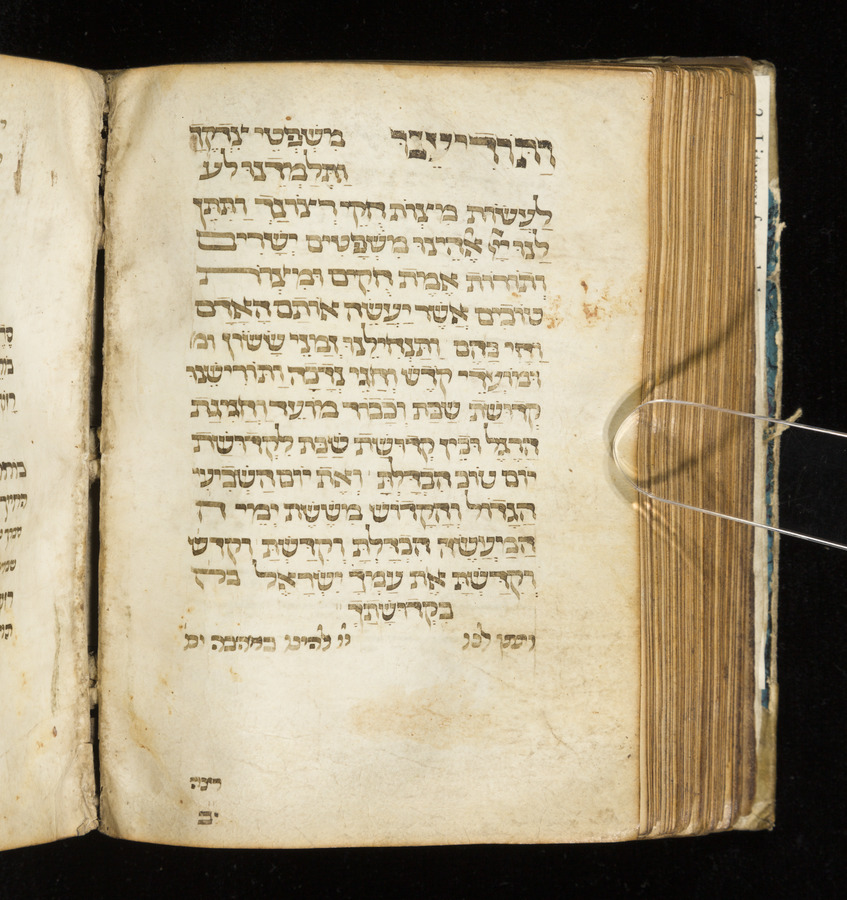 ותודיענו משפטי צדקך
ותלמדנו לע
לעשות מצות חקי רצונך ותתן
לנו יי אלהינו משפטים ישרים
ותורות אמת חקים ומצות
טובים אשר יעשה אותם האדם
וחי בהם ותנחילנו זמני ששון ומ
ומועדי קדש וחגי נדבה ותורישנו
קדושת שבת וכבוד מועד וחגיגת
הרגל ובין קדושת שבת לקדושת
יום טוב הבדלת ואת יום השביעי
הגדול והקדוש מששת ימי ה
המעשה הבדלת וקדשת וקדש
וקדשת את עמך ישראל ברך
בקדושתך
ותתן לנו יי להינו באהבה וכ
רצה